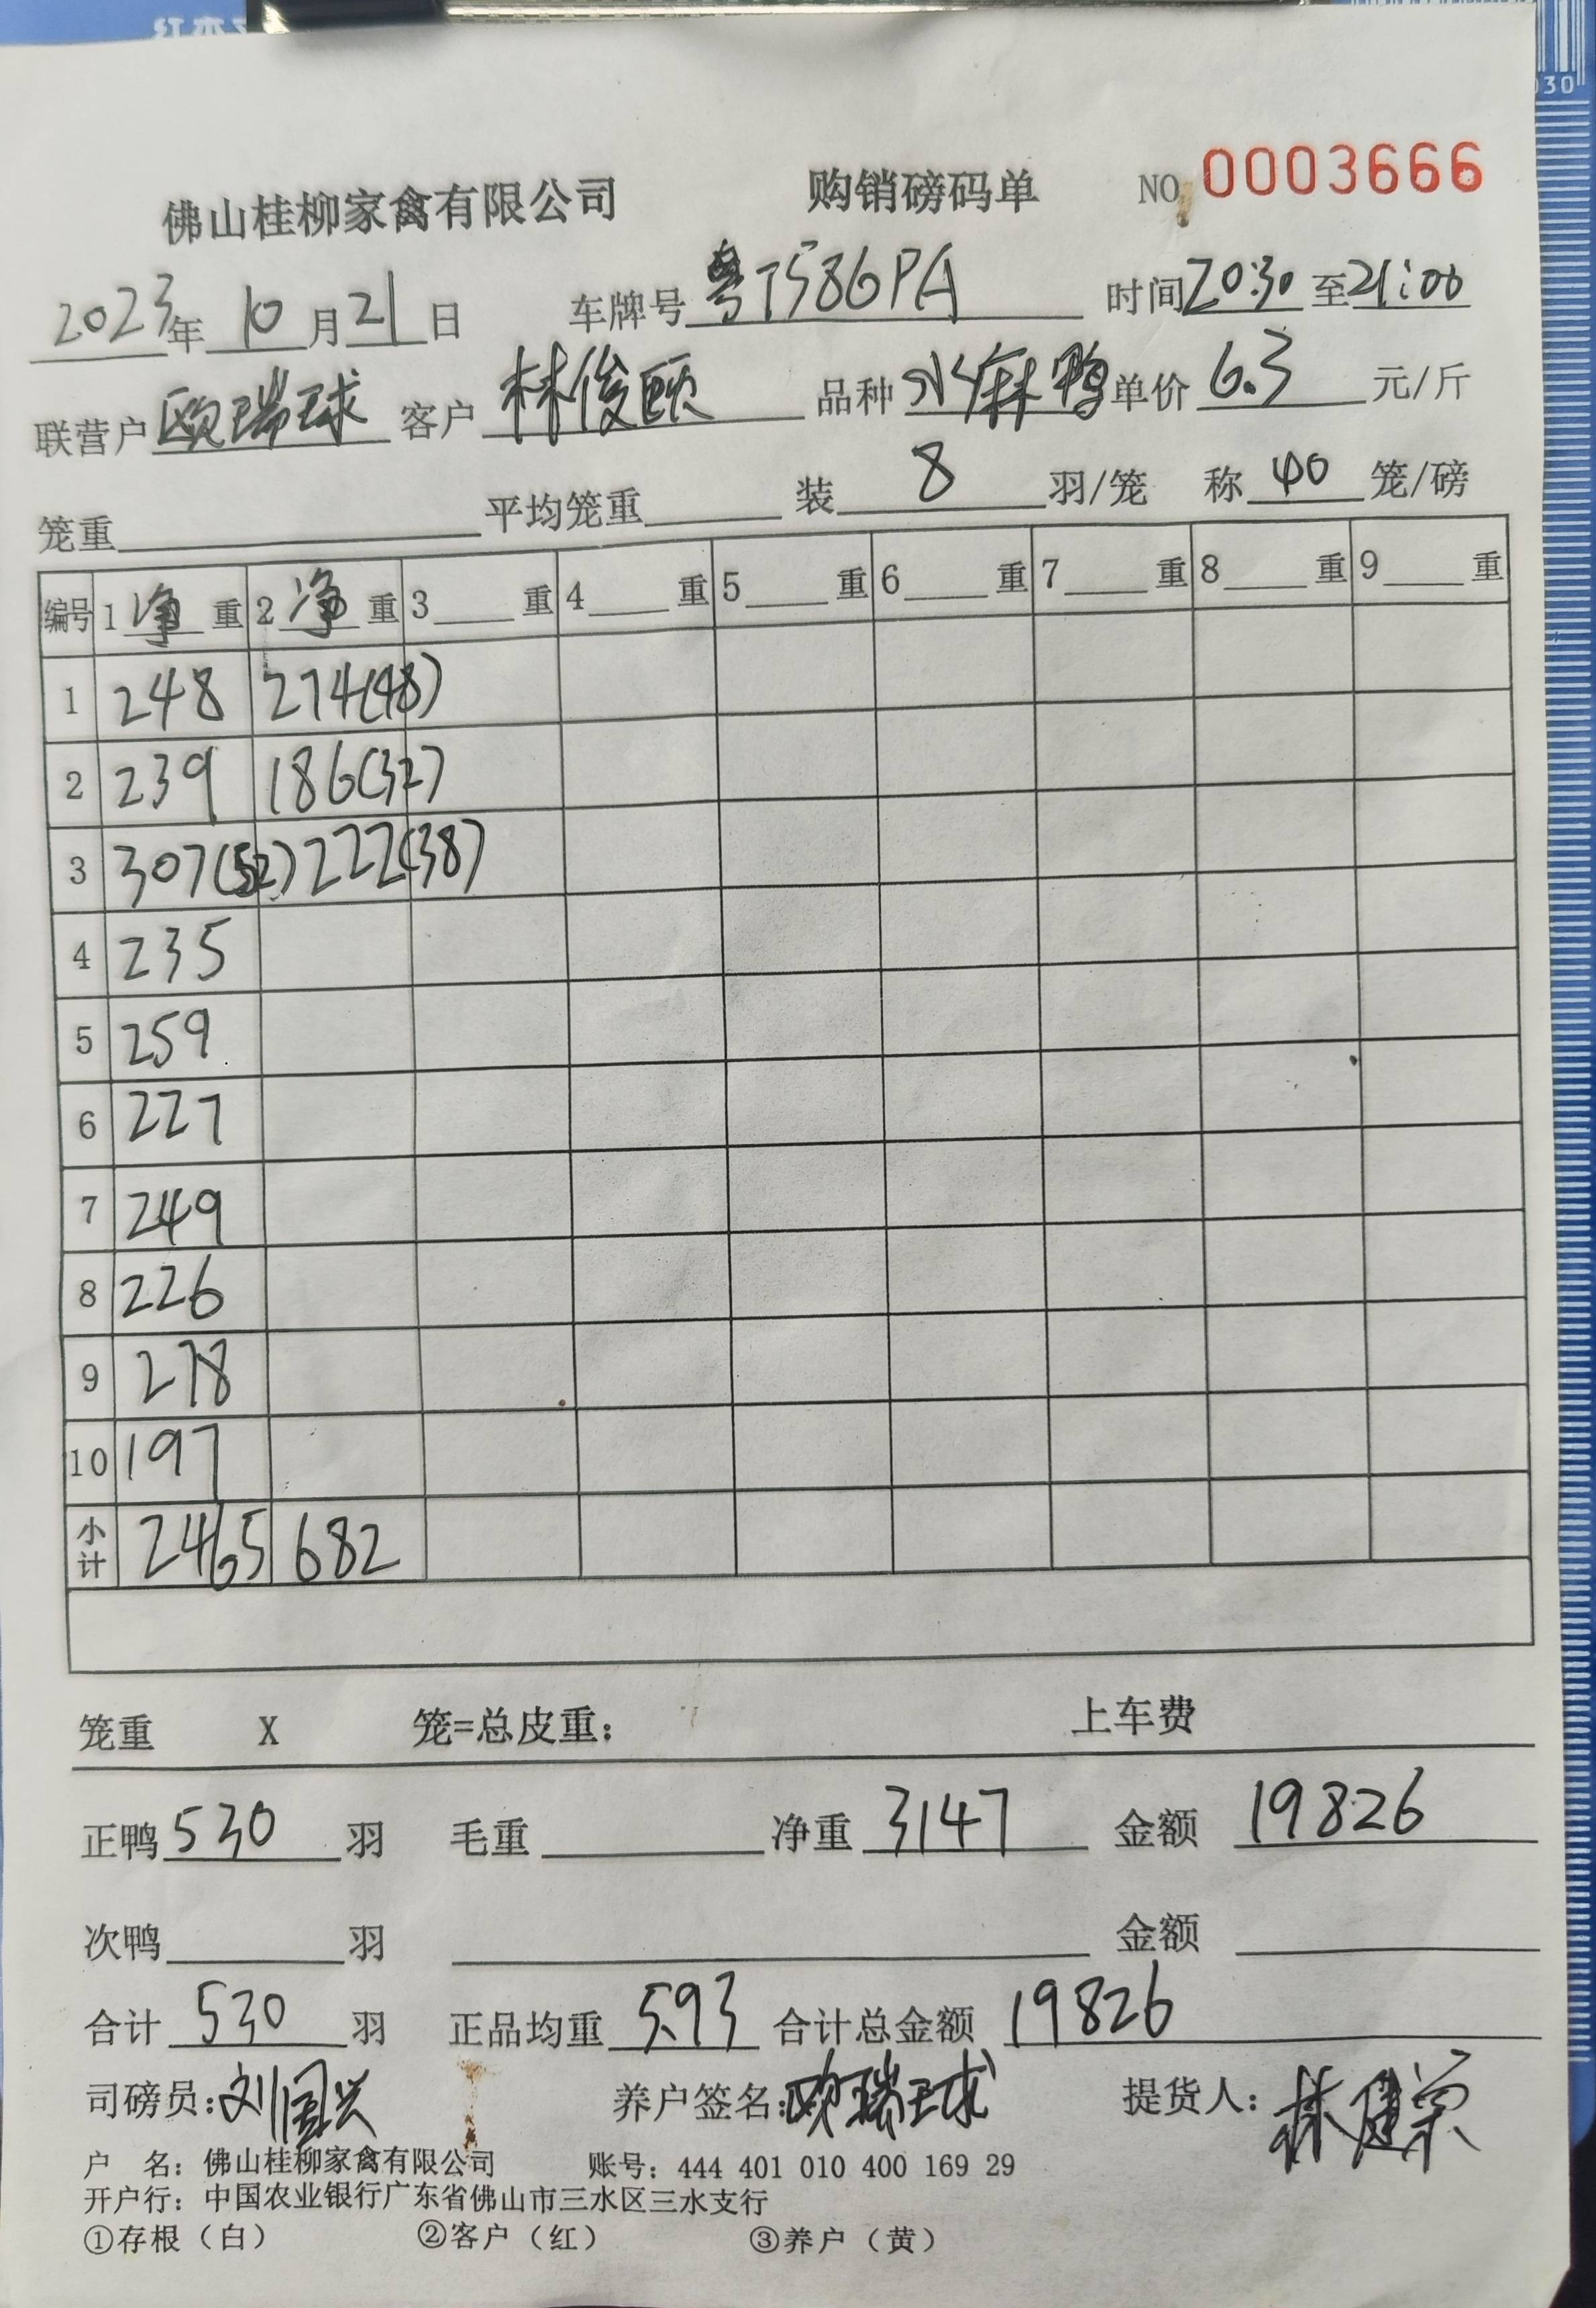 佛山桂柳家禽有限公司 购销磅码单 NO 0003666
2023年10月21日 车牌号 粤T586PA 时间20:30至21:00
联营户 欧瑞球 客户 林俊颐 品种 水麻鸭 单价 6.3 元/斤
笼重 平均笼重 装 8 羽/笼 称 40 笼/磅
编号 1 净 重 2 净 重 3 重 4 重 5 重 6 重 7 重 8 重 9 重
1 248 274(48)
2 239 186(32)
3 307(52) 222(38)
4 235
5 259
6 227
7 249
8 226
9 278
10 197
小计 2465 682
笼重 X 笼=总皮重: 上车费
正鸭 530 羽 毛重 净重 3147 金额 19826
次鸭 羽 金额
合计 530 羽 正品均重 5.93 合计总金额 19826
司磅员:刘国兴 养户签名:欧瑞球 提货人:林健荣
户 名: 佛山桂柳家禽有限公司 账号: 444 401 010 400 169 29
开户行: 中国农业银行广东省佛山市三水区三水支行
①存根（白） ②客户（红） ③养户（黄）